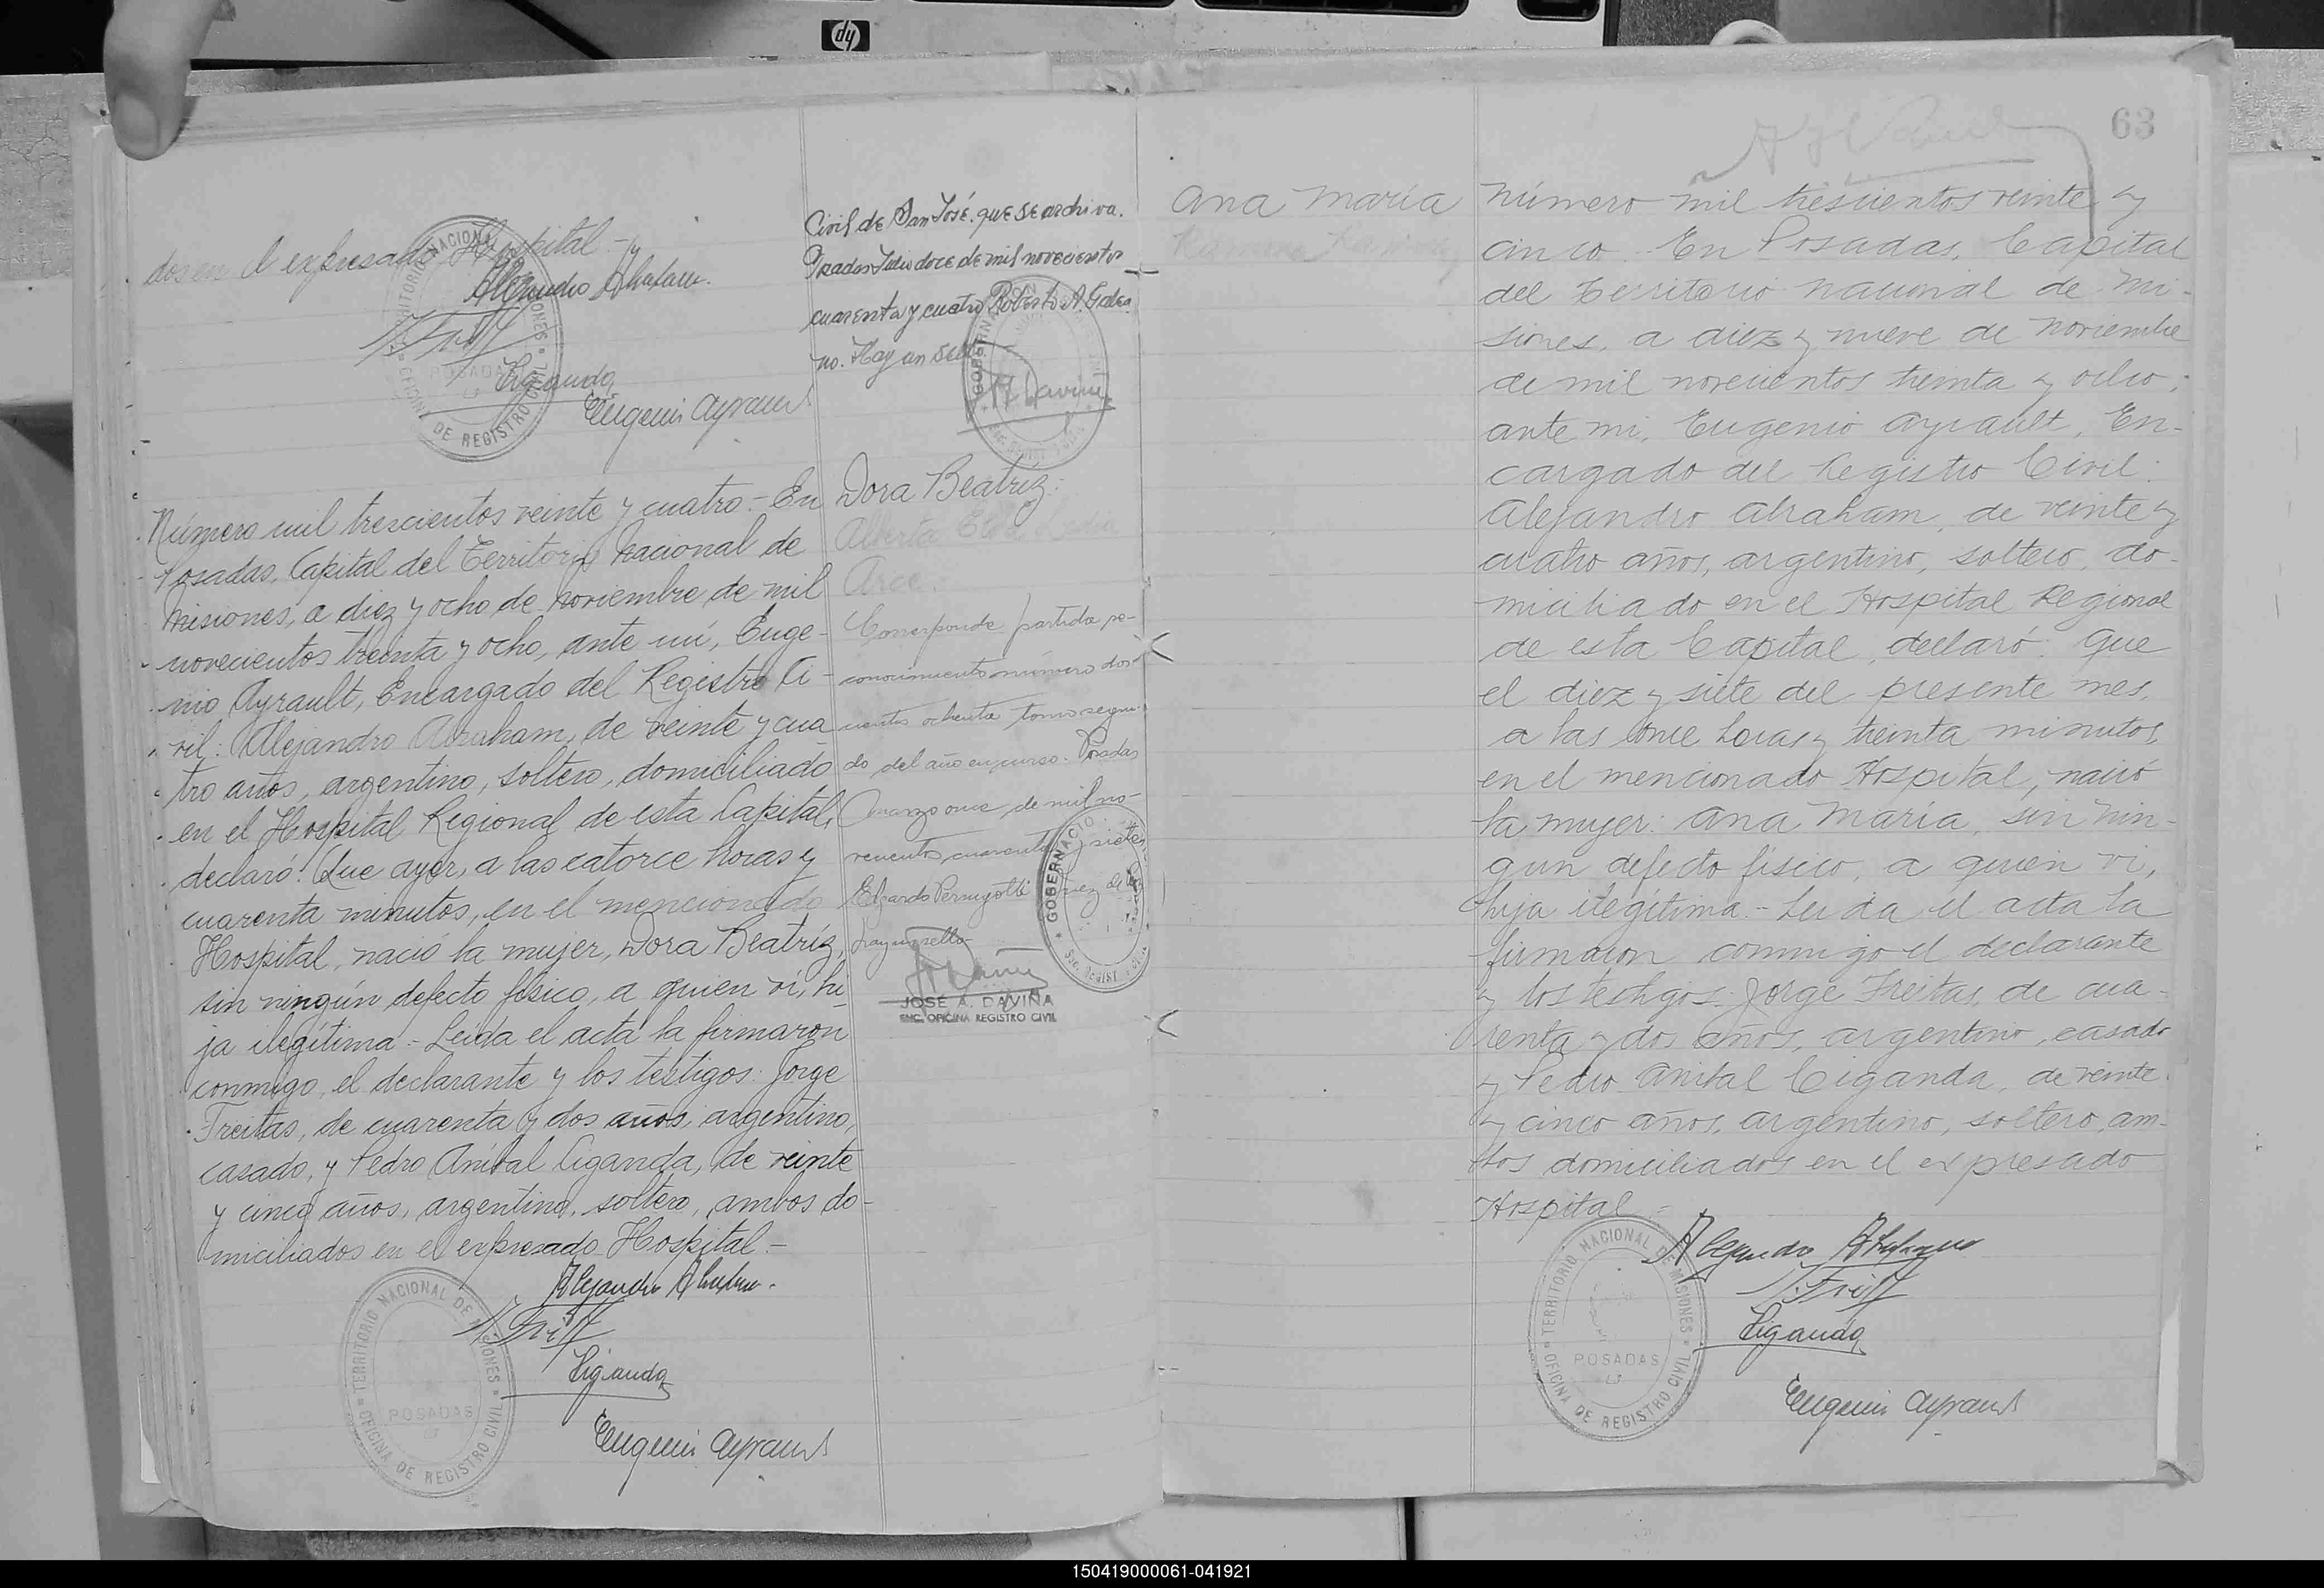 dos en el expresado Hospital -
Alejandro Abraham.
Ciganda
Eugenio Ayrault
Civil de San José. que se archiva.
Posadas Julio doce de mil novecientos
cuarenta y cuatro Roberto A. Galea
no. Hay un sello.
Número mil trescientos veinte y cuatro - En
Posadas, Capital del Territorio Nacional de
Misiones, a diez y ocho de noviembre de mil
novecientos treinta y ocho, ante mí, Euge-
nio Ayrault, Encargado del Registro Ci-
vil: Alejandro Abraham, de veinte y cua
tro años, argentino, soltero, domiciliado
en el Hospital Regional de esta Capital,
declaró: Que ayer, a las catorce horas y
cuarenta minutos, en el mencionado
Hospital, nació la mujer, Dora Beatríz,
sin ningún defecto físico, a quien ví, hi
ja ilegítima - Leída el acta la firmaron
conmigo, el declarante y los testigos: Jorge
Freitas, de cuarenta y dos años, argentino,
casado, y Pedro Aníbal Ciganda, de veinte
y cinco años, argentino, soltero, ambos do-
miciliados en el expresado Hospital -
Alejandro Abraham.
Ciganda
Eugenio Ayrault
TERRITORIO NACIONAL DE MISIONES
POSADAS
OFICINA DE REGISTRO CIVIL
Dora Beatríz:
Alberta
Arce.
Corresponde partida re-
conocimiento número dos-
cientos ochenta tomo segun-
do del año en curso. Posadas
marzo once de mil no-
vecientos cuarenta y siete
Edgardo Perugotti Juez de
hay un sello
JOSÉ A. DAVIÑA
ENC. OFICINA REGISTRO CIVIL
63
Ana María
Número mil trescientos veinte y
cinco. En Posadas, Capital
del Territorio Nacional de Mi-
siones, a diez y nueve de noviembre
de mil novecientos treinta y ocho,
ante mi, Eugenio Ayrault, En-
cargado del Registro Civil:
Alejandro Abraham, de veinte y
cuatro años, argentino, soltero, do-
miciliado en el Hospital Regional
de esta Capital, declaró: Que
el diez y siete del presente mes,
a las once horas y treinta minutos,
en el mencionado Hospital, nació
la mujer: Ana María, sin nin-
gun defecto físico, a quien vi,
hija ilegítima - Leida el acta la
firmaron conmigo el declarante
y los testigos: Jorge Freitas, de cua-
renta y dos años, argentino, casado
y Pedro Anibal Ciganda, de veinte
y cinco años, argentino, soltero, am-
bos domiciliados en el expresado
Hospital -
Alejandro Abraham
Ciganda
Eugenio Ayrault
TERRITORIO NACIONAL DE MISIONES
POSADAS
OFICINA DE REGISTRO CIVIL
150419000061-041921